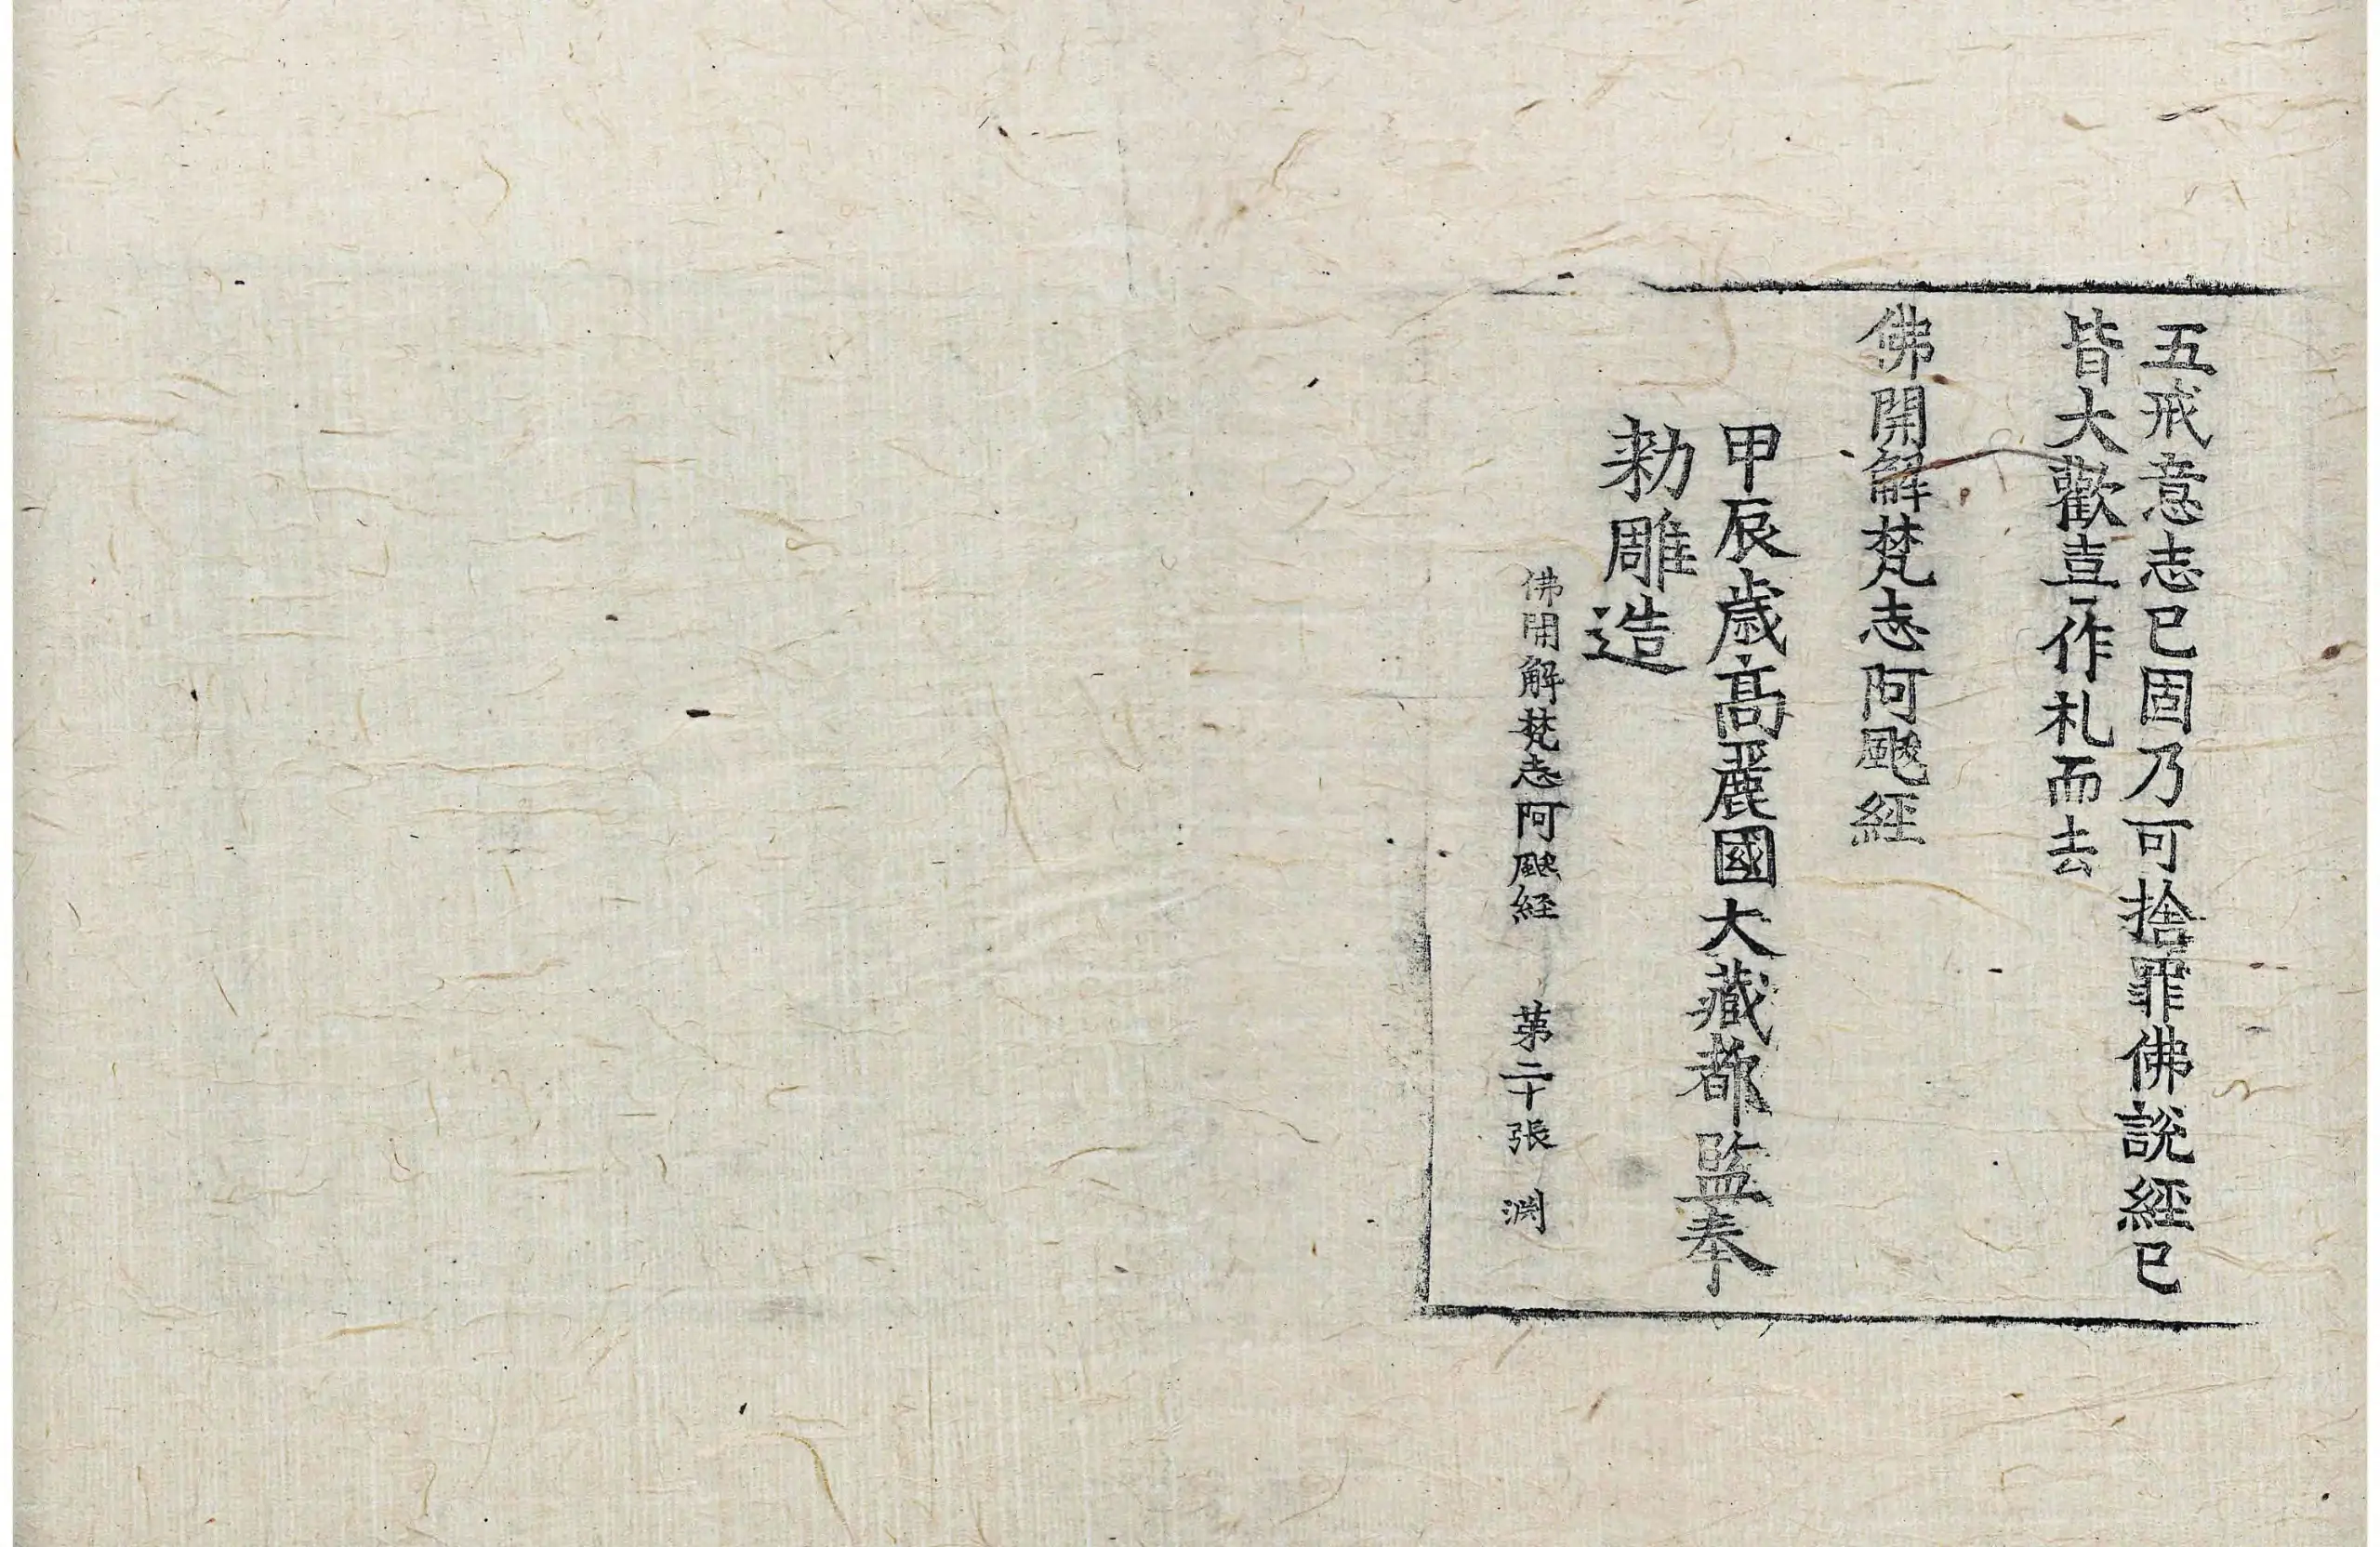 五戒意志已固乃可捨罪佛說經已
皆大歡喜作礼而去
佛開解梵志阿颰經
甲辰歲高麗國大藏都監奉
勑雕造
佛開解梵志阿颰経 第二十張 渊